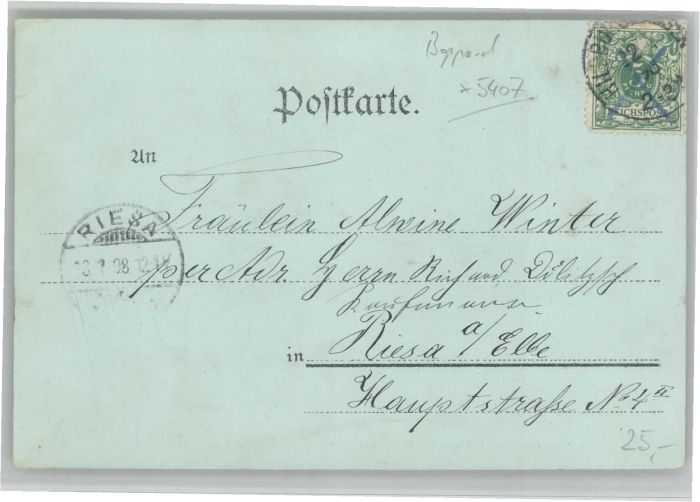 Boppard
*5407
Postkarte.
REICHSPOST
An
Fräulein Alwine Winter
per Adr. Herrn Richard Dölitzsch
Kaufmann
in Riesa a/Elbe
Hauptstraße No 4 II
RIESA
98 12-1
25,-